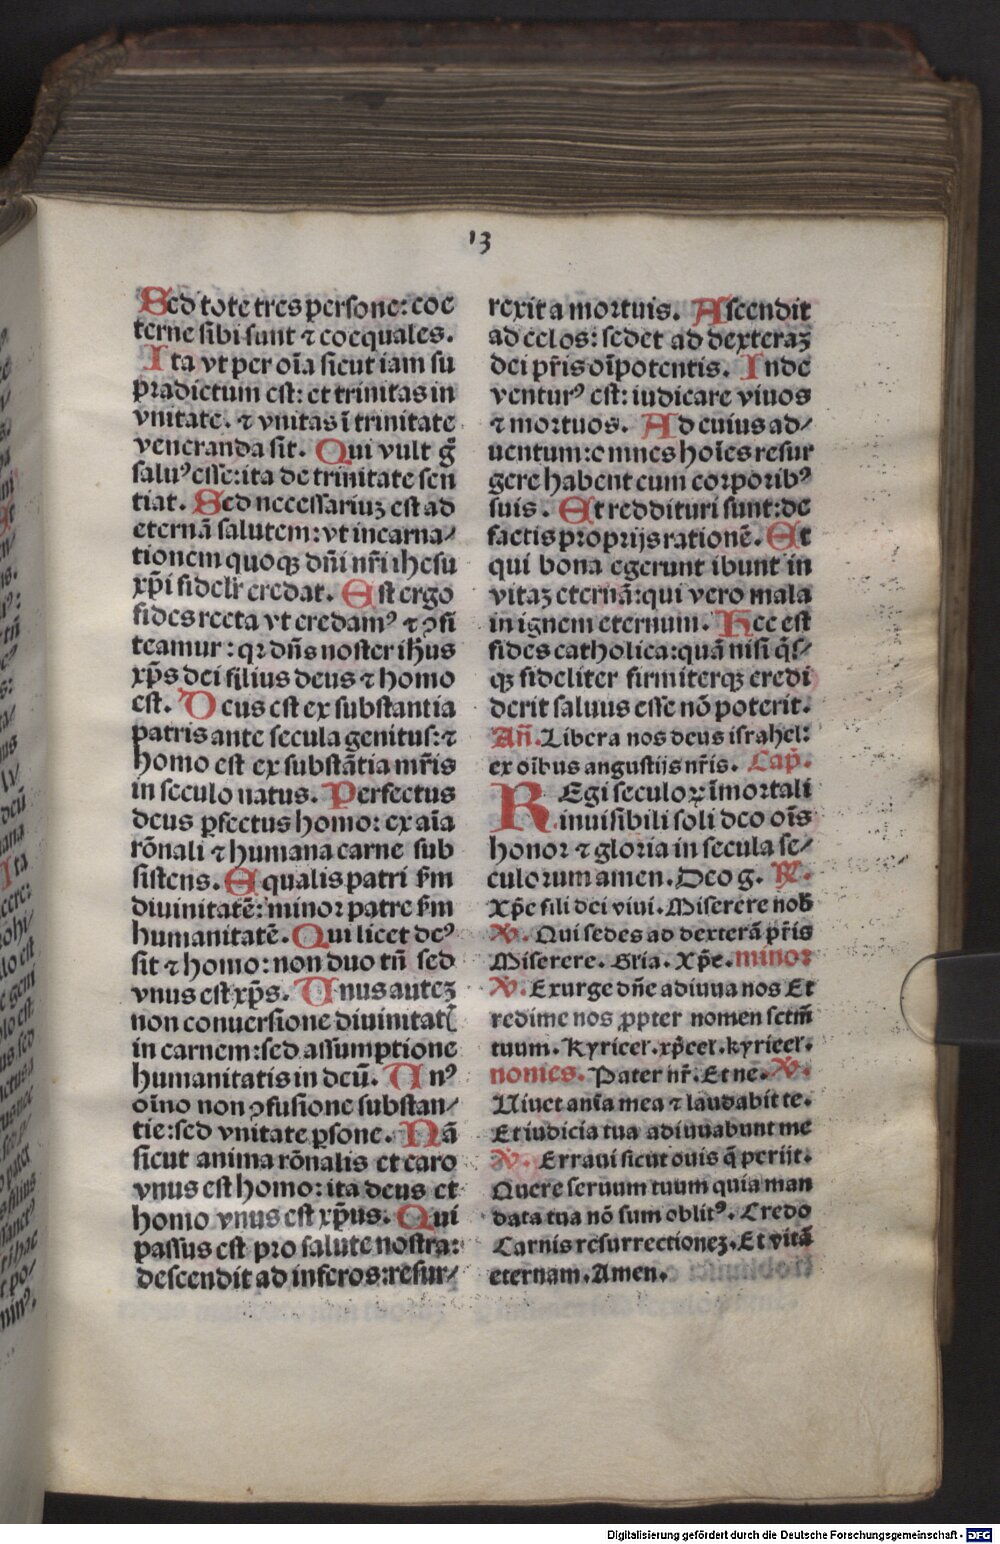 13
Sed tote tres persone: coe
terne sibi sunt ⁊ coequales.
Ita vt per oīa sicut iam su
pradictum est: et trinitas in
vnitate. ⁊ vnitas ī trinitate
veneranda sit. Qui vult g̃
saluꝰ esse: ita de trinitate sen
tiat. Sed necessariuꝫ est ad
eternã salutem: vt incarna⸗
tionem quoqꝫ dñi nr̃i ihesu
xp̃i fidelr̃ credat. Est ergo
fides recta vt credamꝰ ⁊ ꝯfi
teamur: qꝛ dñs noster ih̃us
xp̃s dei filius deus ⁊ homo
est. Deus est ex substantia
patris ante secula genitus: ⁊
homo est ex substãtia mr̃is
in seculo natus. Perfectus
deus ꝑfectus homo: ex aĩa
rõnali ⁊ humana carne sub
sistens. Equalis patri ẜm
diuinitatẽ: minor patre ẜm
humanitatẽ. Qui licet deꝰ
sit ⁊ homo: non duo tñ sed
vnus est xp̃s. Unus auteꝫ
non conuersione diuinitatꝭ
in carnem: sed assumptione
humanitatis in deũ. Unꝰ
oĩno non ꝯfusione substan⸗
tie: sed vnitate ꝑsone. Nã
sicut anima rõnalis et caro
vnus est homo: ita deus et
homo vnus est xp̃us. Qui
passus est pro salute nostra:
descendit ad inferos: resur⸗
rexit a mortuis. Ascendit
ad celos: sedet ad dexteraꝫ
dei pr̃is oĩpotentis. Inde
venturꝰ est: iudicare viuos
⁊ mortuos. Ad cuius ad⸗
uentum: omnes hoĩes resur
gere habent cum corporibꝰ
suis. Et reddituri sunt: de
factis proprijs rationẽ. Et
qui bona egerunt ibunt in
vitaꝫ eternã: qui vero mala
in ignem eternum. Hec est
fides catholica: quã nisi q̃s⸗
qꝫ fideliter firmiterqꝫ credi
derit saluus esse nõ poterit.
Añ. Libera nos deus israhel:
ex oĩbus angustijs nr̃is. Cap̃.
Regi seculoꝝ ĩmortali
inuisibili soli deo oĩs
honor ⁊ gloria in secula se⸗
culorum amen. Deo g. ℟.
Xp̃e fili dei viui. Miserere nob
℣. Qui sedes ad dexterã pr̃is
Miserere. Gria. Xp̃e. minor
℣. Exurge dñe adiuua nos Et
redime nos ꝓpter nomen sctm̃
tuum. Kyrieel. xp̃eel. kyrieel.
nomies. Pater nr̃. Et ne. ℣.
Uiuet anĩa mea ⁊ laudabit te.
Et iudicia tua adiuuabunt me
℣. Erraui sicut ouis q̃ perijt.
Quere seruum tuum quia man
data tua nõ sum oblitꝰ. Credo
Carnis resurrectioneꝫ. Et vitã
eternam. Amen.
Digitalisierung gefördert durch die Deutsche Forschungsgemeinschaft - DFG